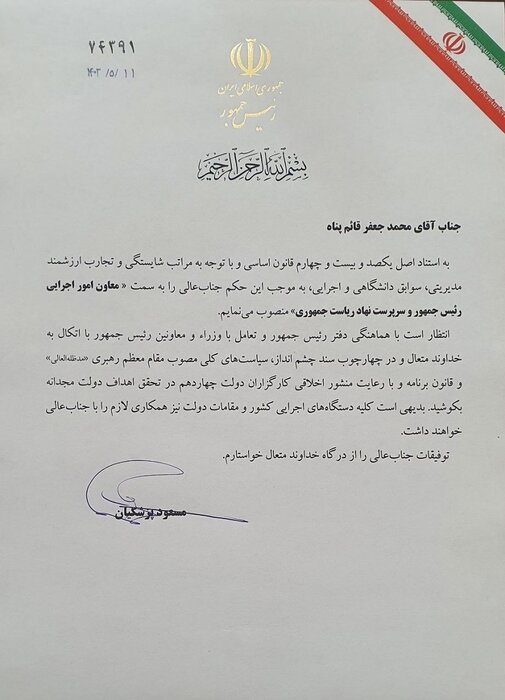 ۷۴۳۹۱
۱۴۰۳/۵/۱۱
جمهوری اسلامی ایران
رئیس جمهور
بسم الله الرحمن الرحیم
جناب آقای محمد جعفر قائم پناه
به استناد اصل یکصد و بیست و چهارم قانون اساسی و با توجه به مراتب شایستگی و تجارب ارزشمند
مدیریتی، سوابق دانشگاهی و اجرایی، به موجب این حکم جناب‌عالی را به سمت «معاون امور اجرایی
رئیس جمهور و سرپرست نهاد ریاست جمهوری» منصوب می‌نمایم.
انتظار است با هماهنگی دفتر رئیس جمهور و تعامل با وزراء و معاونین رئیس جمهور با اتکال به
خداوند متعال و در چهارچوب سند چشم انداز، سیاست‌های کلی مصوب مقام معظم رهبری «مدظله‌العالی»
و قانون برنامه و با رعایت منشور اخلاقی کارگزاران دولت چهاردهم در تحقق اهداف دولت مجدانه
بکوشید. بدیهی است کلیه دستگاه‌های اجرایی کشور و مقامات دولت نیز همکاری لازم را با جناب‌عالی
خواهند داشت.
توفیقات جناب‌عالی را از درگاه خداوند متعال خواستارم.
مسعود پزشکیان